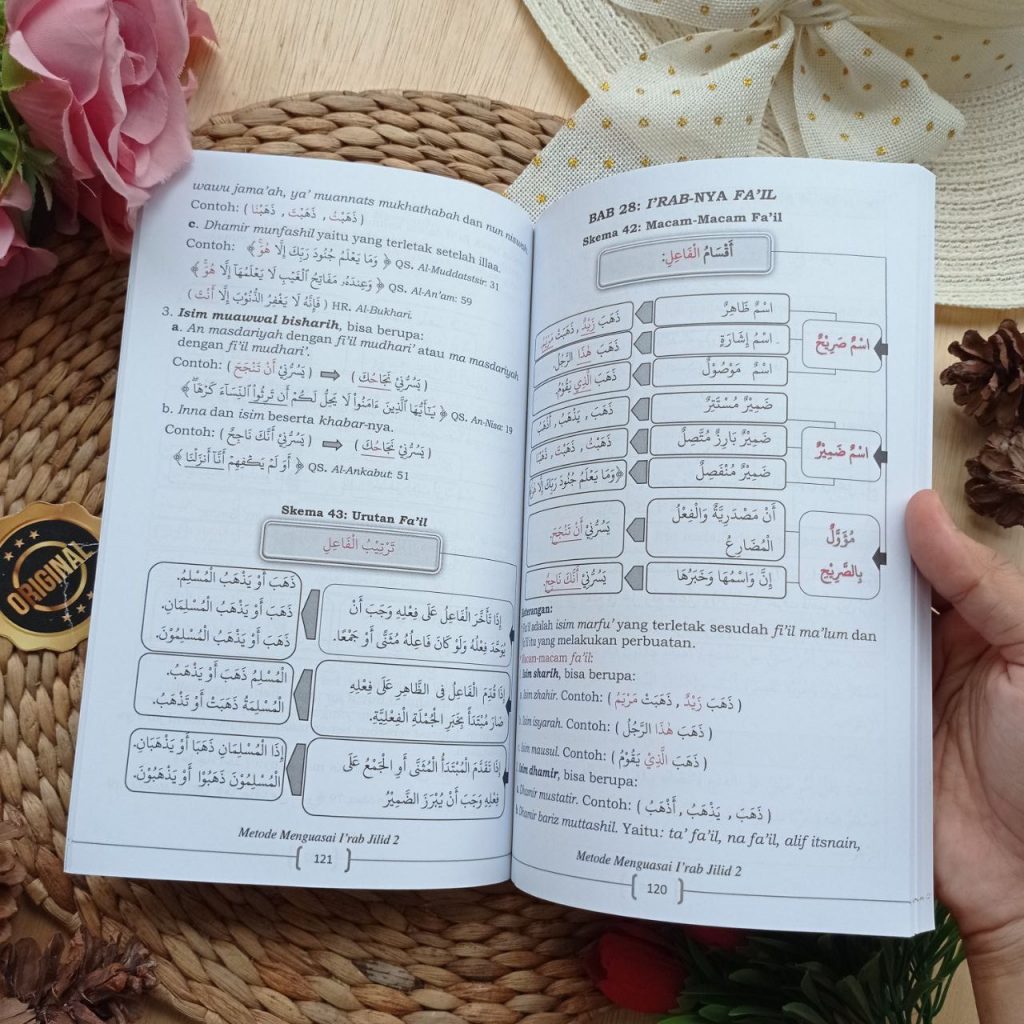 BAB 28: I'RAB-NYA FA'IL
Skema 42: Macam-Macam Fa'il
أَقْسَامُ الْفَاعِلِ:
اسْمٌ صَرِيْحٌ
اسْمٌ ظَاهِرٌ
ذَهَبَ زَيْدٌ , ذَهَبَتْ مَرْيَمُ
اسْمُ إِشَارَةٍ
ذَهَبَ هٰذَا الرَّجُلُ.
اسْمٌ مَوْصُوْلٌ
ذَهَبَ الَّذِيْ يَقُوْمُ.
اسْمٌ ضَمِيْرٌ
ضَمِيْرٌ مُسْتَتِرٌ
ذَهَبَ , يَذْهَبُ , أَذْهَبُ
ضَمِيْرٌ بَارِزٌ مُتَّصِلٌ
ذَهَبْتُ , ذَهَبْتَ , ذَهَبَا
ضَمِيْرٌ مُنْفَصِلٌ
﴿وَمَا يَعْلَمُ جُنُودَ رَبِّكَ إِلَّا هُوَ﴾
مُؤَوَّلٌ بِالصَّرِيْحِ
أَنْ مَصْدَرِيَّةٌ وَالْفِعْلُ
الْمُضَارِعُ
يَسُرُّنِيْ أَنْ تَنْجَحَ.
إِنَّ وَاسْمُهَا وَخَبَرُهَا
يَسُرُّنِيْ أَنَّكَ نَاجِحٌ.
Keterangan:
Fa'il adalah isim marfu' yang terletak sesudah fi'il ma'lum dan
fa'il itu yang melakukan perbuatan.
Macam-macam fa'il:
Isim sharih, bisa berupa:
a. Isim zhahir. Contoh: ( ذَهَبَ زَيْدٌ , ذَهَبَتْ مَرْيَمُ )
b. Isim isyarah. Contoh: ( ذَهَبَ هٰذَا الرَّجُلُ )
c. Isim mausul. Contoh: ( ذَهَبَ الَّذِيْ يَقُوْمُ )
Isim dhamir, bisa berupa:
a. Dhamir mustatir. Contoh: ( ذَهَبَ , يَذْهَبُ , أَذْهَبُ )
b. Dhamir bariz muttashil. Yaitu: ta' fa'il, na fa'il, alif itsnain,
Metode Menguasai I'rab Jilid 2
120
wawu jama'ah, ya' muannats mukhathabah dan nun niswah.
Contoh: ( ذَهَبْتُ , ذَهَبْتَ , ذَهَبْنَا )
c. Dhamir munfashil yaitu yang terletak setelah illaa.
Contoh: ﴿ وَمَا يَعْلَمُ جُنُودَ رَبِّكَ إِلَّا هُوَ ﴾ QS. Al-Muddatstsir: 31
﴿ وَعِندَهُۥ مَفَاتِحُ الْغَيْبِ لَا يَعْلَمُهَآ إِلَّا هُوَ ﴾ QS. Al-An'am: 59
( فَإِنَّهُ لَا يَغْفِرُ الذُّنُوْبَ إِلَّا أَنْتَ ) HR. Al-Bukhari.
3. Isim muawwal bisharih, bisa berupa:
a. An masdariyah dengan fi'il mudhari' atau ma masdariyah
dengan fi'il mudhari'.
Contoh: ( يَسُرُّنِيْ أَنْ تَنْجَحَ ) ⇨ ( يَسُرُّنِيْ نَجَاحُكَ )
﴿ يَـٰٓأَيُّهَا الَّذِينَ ءَامَنُوا۟ لَا يَحِلُّ لَكُمْ أَن تَرِثُوا۟ النِّسَآءَ كَرْهًا ﴾ QS. An-Nisa: 19
b. Inna dan isim beserta khabar-nya.
Contoh: ( يَسُرُّنِيْ أَنَّكَ نَاجِحٌ ) ⇨ ( يَسُرُّنِيْ نَجَاحُكَ )
﴿ أَوَلَمْ يَكْفِهِمْ أَنَّآ أَنزَلْنَا ﴾ QS. Al-Ankabut: 51
Skema 43: Urutan Fa'il
تَرْتِيْبُ الْفَاعِلِ
إِذَا تَأَخَّرَ الْفَاعِلُ عَلَى فِعْلِهِ وَجَبَ أَنْ
يُوَحَّدَ فِعْلُهُ وَلَوْ كَانَ فَاعِلُهُ مُثَنًّى أَوْ جَمْعًا.
ذَهَبَ أَوْ يَذْهَبُ الْمُسْلِمُ.
ذَهَبَ أَوْ يَذْهَبُ الْمُسْلِمَانِ.
ذَهَبَ أَوْ يَذْهَبُ الْمُسْلِمُوْنَ.
إِذَا قُدِّمَ الْفَاعِلُ فِى الظَّاهِرِ عَلَى فِعْلِهِ
صَارَ مُبْتَدَأً بِخَبَرِ الْجُمْلَةِ الْفِعْلِيَّةِ.
الْمُسْلِمُ ذَهَبَ أَوْ يَذْهَبُ.
الْمُسْلِمَةُ ذَهَبَتْ أَوْ تَذْهَبُ.
إِذَا تَقَدَّمَ الْمُبْتَدَأُ الْمُثَنَّى أَوِ الْجَمْعُ عَلَى
فِعْلِهِ وَجَبَ أَنْ يُبْرَزَ الضَّمِيْرُ
إِذَا الْمُسْلِمَانِ ذَهَبَا أَوْ يَذْهَبَانِ.
الْمُسْلِمُوْنَ ذَهَبُوْا أَوْ يَذْهَبُوْنَ.
Metode Menguasai I'rab Jilid 2
121
ORIGINAL